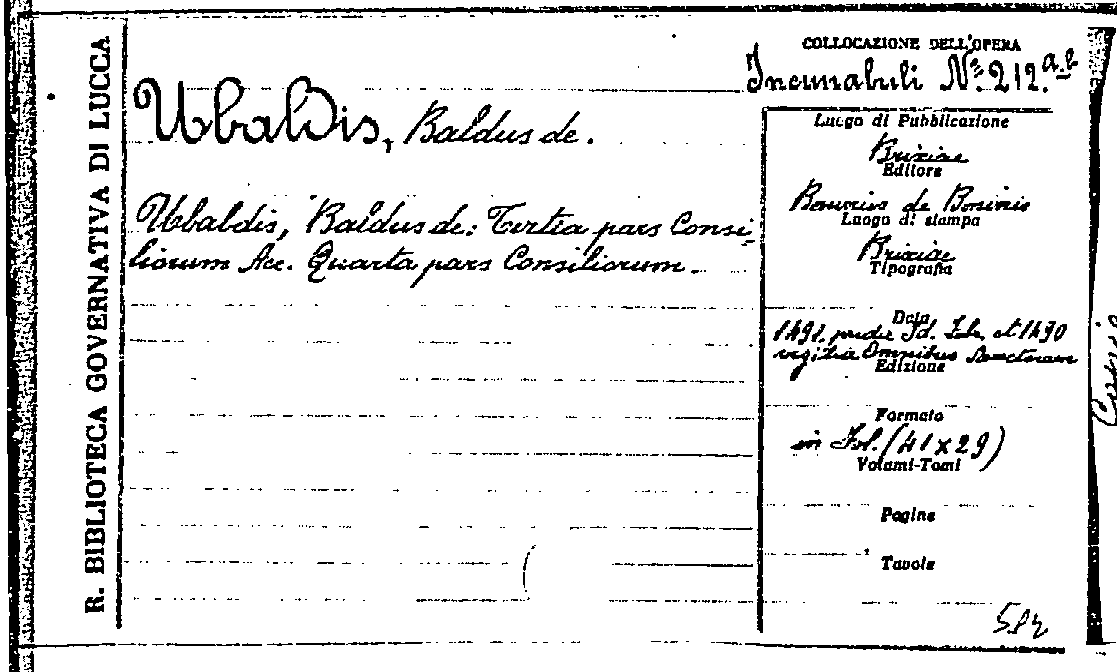 R. BIBLIOTECA GOVERNATIVA DI LUCCA
Ubaldis, Baldus de.
Ubaldis, Baldus de: Tertia pars Consi-
liorum Acc. Quarta pars Consiliorum.
COLLOCAZIONE DELL'OPERA
Incunabuli Nº 212. a.b
Luogo di Pubblicazione
Brixiae
Editore
Boninus de Boninis
Luogo di stampa
Brixiae
Tipografia
Data
1491. pridie Id. Feb. et 1490
vigilia Omnibus Sanctorum
Edizione
Formato
in Fol. (41 x 29)
Volumi-Tomi
Pagine
Tavole